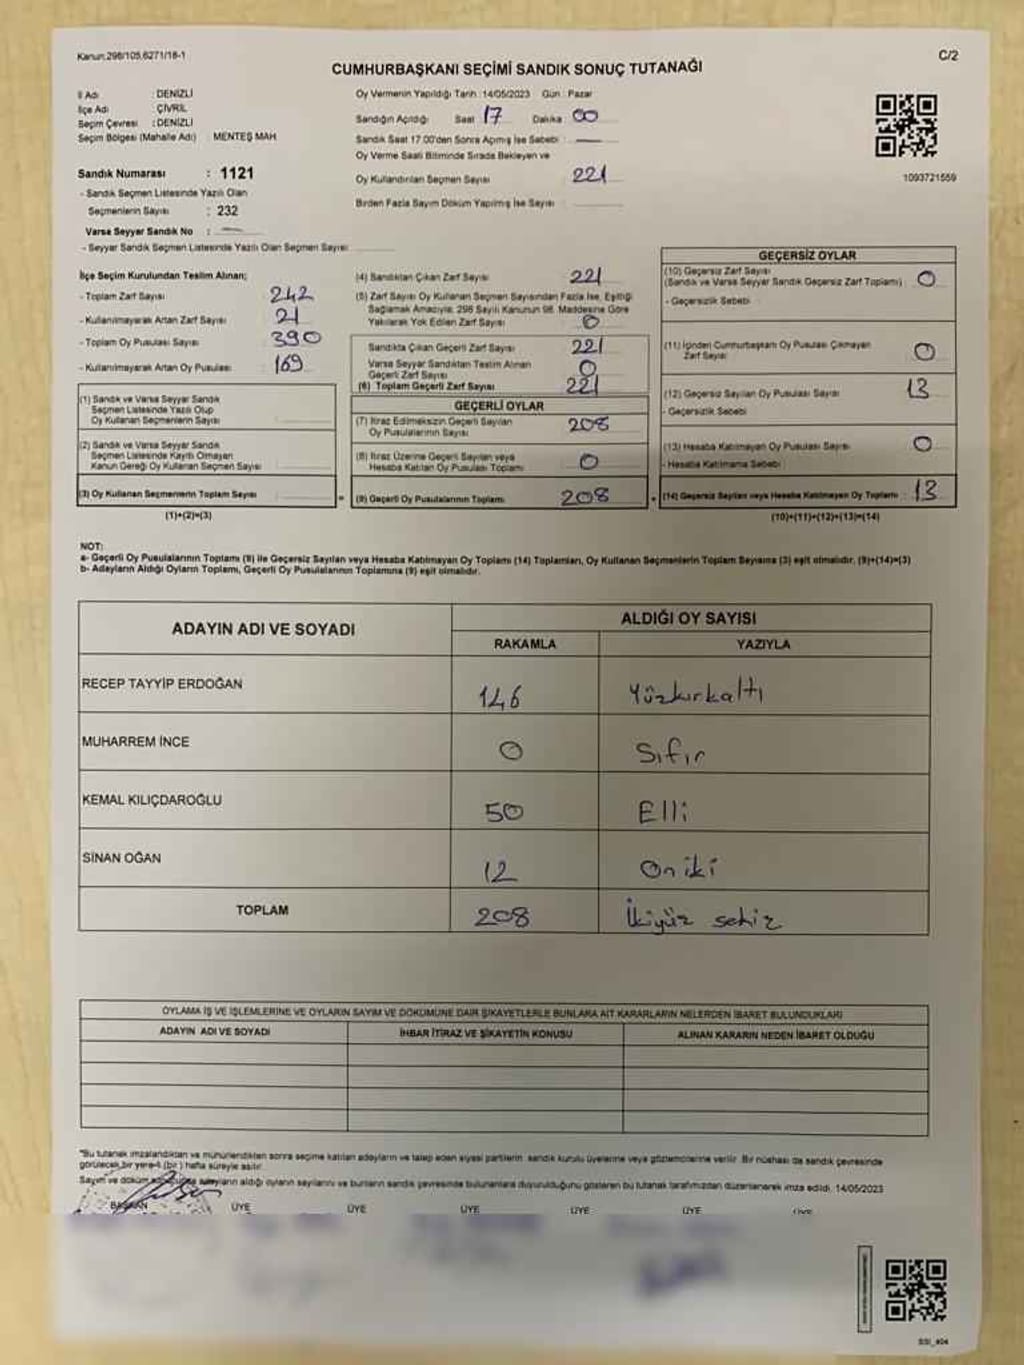 Kanun:298/105,6271/18-1
C/2
CUMHURBAŞKANI SEÇİMİ SANDIK SONUÇ TUTANAĞI
İl Adı : DENİZLİ
İlçe Adı : ÇİVRİL
Seçim Çevresi : DENİZLİ
Seçim Bölgesi (Mahalle Adı) MENTEŞ MAH.
Sandık Numarası : 1121
- Sandık Seçmen Listesinde Yazılı Olan
Seçmenlerin Sayısı : 232
Varsa Seyyar Sandık No :
- Seyyar Sandık Seçmen Listesinde Yazılı Olan Seçmen Sayısı
Oy Vermenin Yapıldığı Tarih :14/05/2023 Gün : Pazar
Sandığın Açıldığı Saat 17 Dakika 00
Sandık Saat 17.00'den Sonra Açılmış İse Sebebi :
Oy Verme Saati Bitiminde Sırada Bekleyen ve
Oy Kullandırılan Seçmen Sayısı 221
Birden Fazla Sayım Döküm Yapılmış İse Sayısı :
1093721559
İlçe Seçim Kurulundan Teslim Alınan;
- Toplam Zarf Sayısı 242
- Kullanılmayarak Artan Zarf Sayısı : 21
- Toplam Oy Pusulası Sayısı : 390
- Kullanılmayarak Artan Oy Pusulası : 169
(1) Sandık ve Varsa Seyyar Sandık
Seçmen Listesinde Yazılı Olup
Oy Kullanan Seçmenlerin Sayısı
(2) Sandık ve Varsa Seyyar Sandık
Seçmen Listesinde Kayıtlı Olmayan
Kanun Gereği Oy Kullanan Seçmen Sayısı
(3) Oy Kullanan Seçmenlerin Toplam Sayısı
(1)+(2)=(3)
(4) Sandıktan Çıkan Zarf Sayısı 221
(5) Zarf Sayısı Oy Kullanan Seçmen Sayısından Fazla İse, Eşitliği
Sağlamak Amacıyla, 298 Sayılı Kanunun 98. Maddesine Göre
Yakılarak Yok Edilen Zarf Sayısı : 0
Sandıkta Çıkan Geçerli Zarf Sayısı 221
Varsa Seyyar Sandıktan Teslim Alınan
Geçerli Zarf Sayısı 0
(6) Toplam Geçerli Zarf Sayısı 221
GEÇERLİ OYLAR
(7) İtiraz Edilmeksizin Geçerli Sayılan
Oy Pusulalarının Sayısı 208
(8) İtiraz Üzerine Geçerli Sayılan veya
Hesaba Katılan Oy Pusulası Toplamı 0
= (9) Geçerli Oy Pusulalarının Toplamı 208
GEÇERSİZ OYLAR
(10) Geçersiz Zarf Sayısı
(Sandık ve Varsa Seyyar Sandık Geçersiz Zarf Toplamı) : 0
- Geçersizlik Sebebi
(11) İçinden Cumhurbaşkanı Oy Pusulası Çıkmayan
Zarf Sayısı 0
(12) Geçersiz Sayılan Oy Pusulası Sayısı 13
- Geçersizlik Sebebi
(13) Hesaba Katılmayan Oy Pusulası Sayısı 0
- Hesaba Katılmama Sebebi
+ (14) Geçersiz Sayılan veya Hesaba Katılmayan Oy Toplamı : 13
(10)+(11)+(12)+(13)=(14)
NOT:
a- Geçerli Oy Pusulalarının Toplamı (9) ile Geçersiz Sayılan veya Hesaba Katılmayan Oy Toplamı (14) Toplamları, Oy Kullanan Seçmenlerin Toplam Sayısına (3) eşit olmalıdır. (9)+(14)=(3)
b- Adayların Aldığı Oyların Toplamı, Geçerli Oy Pusulalarının Toplamına (9) eşit olmalıdır.
ADAYIN ADI VE SOYADI
ALDIĞI OY SAYISI
RAKAMLA YAZIYLA
RECEP TAYYİP ERDOĞAN 146 Yüzkırkaltı
MUHARREM İNCE 0 Sıfır
KEMAL KILIÇDAROĞLU 50 Elli
SİNAN OĞAN 12 Oniki
TOPLAM 208 İkiyüz sekiz
OYLAMA İŞ VE İŞLEMLERİNE VE OYLARIN SAYIM VE DÖKÜMÜNE DAİR ŞİKAYETLERLE BUNLARA AİT KARARLARIN NELERDEN İBARET BULUNDUKLARI
ADAYIN ADI VE SOYADI İHBAR İTİRAZ VE ŞİKAYETİN KONUSU ALINAN KARARIN NEDEN İBARET OLDUĞU
"Bu tutanak imzalandıktan ve mühürlendikten sonra seçime katılan adayların ve talep eden siyasi partilerin, sandık kurulu üyelerine veya gözlemcilerine verilir. Bir nüshası da sandık çevresinde
görülecek bir yere 1 (bir) hafta süreyle asılır.
Sayım ve döküm adayların aldığı oyların sayılarını ve bunların sandık çevresinde bulunanlara duyurulduğunu gösteren bu tutanak tarafımızdan düzenlenerek imza edildi. 14/05/2023
BAŞKAN ÜYE ÜYE ÜYE ÜYE ÜYE ÜYE
SSI_404